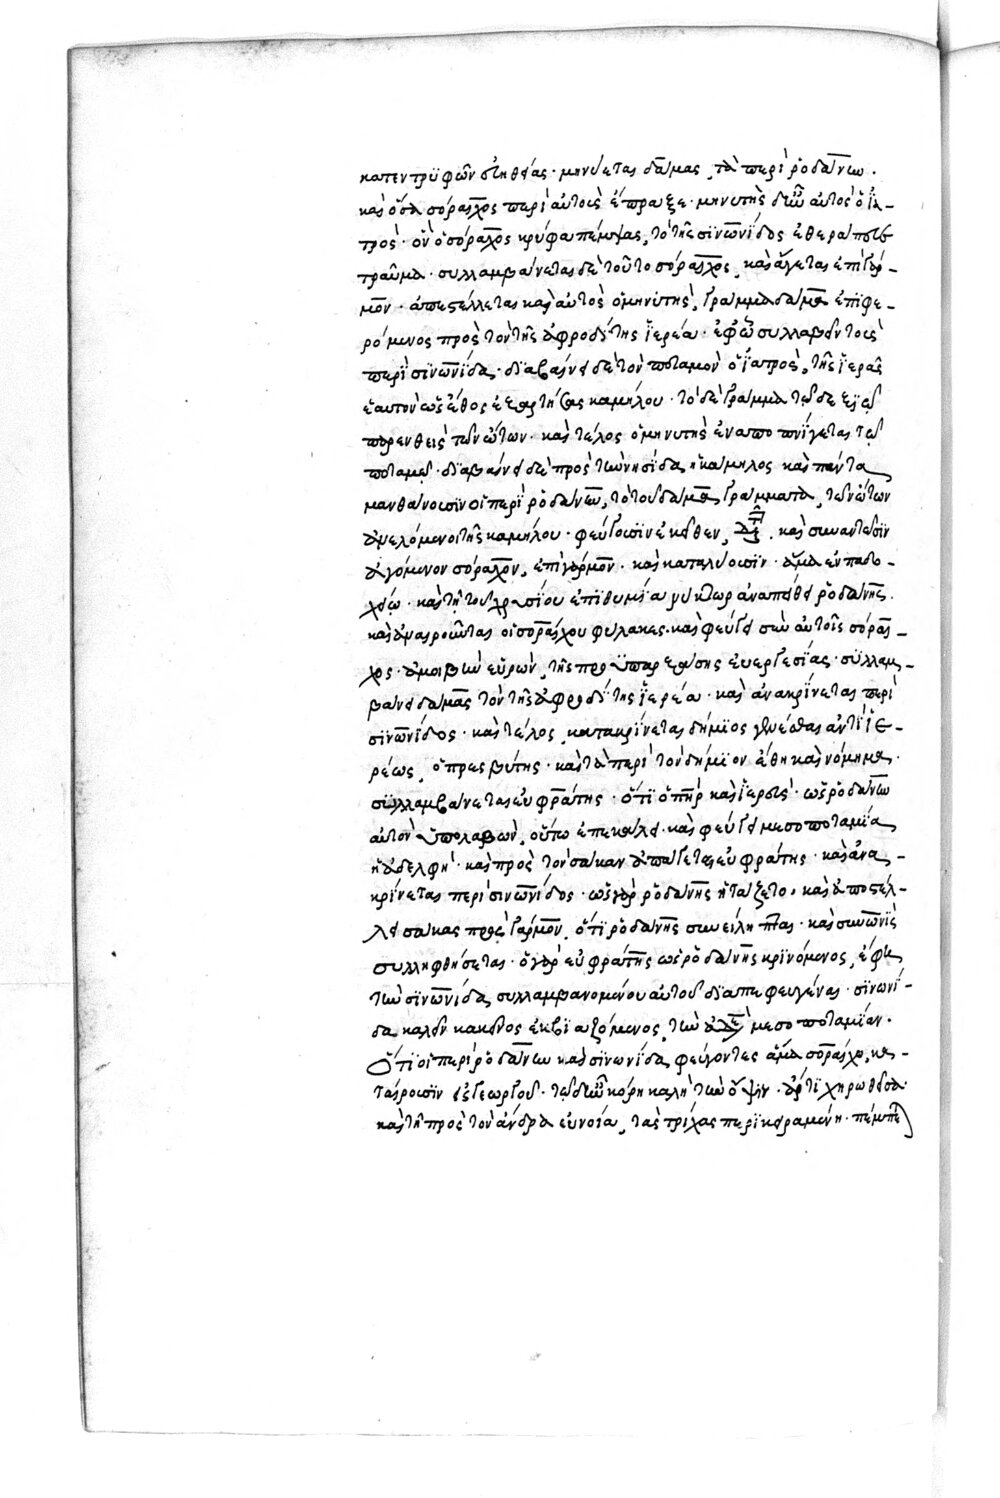 κατεντρϋφῶν ἀληθείας · μηνύεται δάμας τὰ περὶ ῥοδάνην ·
καὶ ὅσα σόραιχος περὶ αὐτοὺς ἔπραξε · μηνυτὴς δὲ ἦν αὐτὸς ὁ ἰα-
τρὸς · ὃν ὁ σόραιχος κρύφα πέμψας, τὸ τῆς σινωνίδος ἐθεράπευσε
τραῦμα · συλλαμβάνεται δὲ τοῦτο σόραιχος, καὶ ἄγεται ἐπὶ γάρ-
μον · ἀποστέλλεται καὶ αὐτὸς ὁ μηνυτὴς, γράμμα δάμα ἐπιφε-
ρόμενος πρὸς τὸν τῆς ἀφροδίτης ἱερέα · ἐφ' ὧ συλλαβεῖν τοὺς
περὶ σινωνίδα · διαβαίνει δὲ τὸν ποταμὸν ὁ ἰατρὸς, τῆς ἱερᾶς
ἑαυτὸν ὡς ἔθος ἐξαρτήσας καμήλου · τὸ δὲ γράμμα τῶ δεξιῶ
παρενθεὶς τῶν ὤτων · καὶ τέλος ὁ μηνυτὴς ἐναποπνίγεται τῶ
ποταμῶ · διαβαίνει δὲ πρὸς τὴν νησίδα ἡ κάμηλος καὶ πάντα
μανθάνουσιν οἱ περὶ ῥοδάνην, τὸ τοῦ δάμα γράμμα τῶν ὤτων
ἀνελόμενοι τῆς καμήλου · φεύγουσιν ἐκεῖθεν καὶ συναντῶσιν
ἀγόμενον σόραιχον, ἐπὶ γάρμον · καὶ καταλύουσιν · ἅμα ἐν πανδο-
χείω · καὶ τῇ τοῦ χρυσίου ἐπιθυμία νύκτωρ ἀναπείθει ῥοδάνης ·
καὶ ἀναιροῦνται οἱ σοραίχου φύλακες · καὶ φεύγει σὺν αὐτοῖς σόραι-
χος · ἀμοιβὴν εὑρὼν, τῆς προϋπαρξάσης εὐεργεσίας · συλλαμ-
βάνει δάμας τὸν τῆς ἀφροδίτης ἱερέα · καὶ ἀνακρίνεται περὶ
σινωνίδος · καὶ τέλος κατακρίνεται δήμιος γενέσθαι ἀντὶ ἱε-
ρέως ὁ πρεσβύτης · καὶ τὰ περὶ τὸν δήμιον ἔθη καὶ νόμιμα ·
συλλαμβάνεται εὐφράτης · ὅτι ὁ πατὴρ καὶ ἱερεὺς · ὡς ῥοδάνην
αὐτὸν ὑπολαβὼν, οὕτω ἐπεκάλει · καὶ φεύγει μεσοποταμία
ἡ ἀδελφὴ · καὶ πρὸς τὸν σάκαν ἀπάγεται εὐφράτης · καὶ ἀνα-
κρίνεται περὶ σινωνίδος · ὡς γὰρ ῥοδάνης ἠτάζετο · καὶ ἀποστέλ-
λει σάκας πρὸς γάρμον, ὅτι ῥοδάνης συνείληπται · καὶ σινωνὶς
συλληφθήσεται · ὁ γὰρ εὐφράτης ὡς ῥοδάνης κρινόμενος, ἔφη
τὴν σινωνίδα συλλαμβανομένου αὐτοῦ διαπεφευγέναι · σινωνί-
δα καλεῖν κἀκεῖνος ἐκβιαζόμενος, τὴν ἀδελφὴν μεσοποταμίαν ·
Ὅτι οἱ περὶ ῥοδάνην καὶ σινωνίδα φεύγοντες ἅμα σοραίχω, κα-
ταίρουσιν εἰς γεωργοῦ · τῶ δὲ ἦν κόρη καλὴ τὴν ὄψιν · ἄρτι χηρωθεῖσα
καὶ τῇ πρὸς τὸν ἄνδρα εὐνοία, τὰς τρίχας περικειραμένη · πέμπε